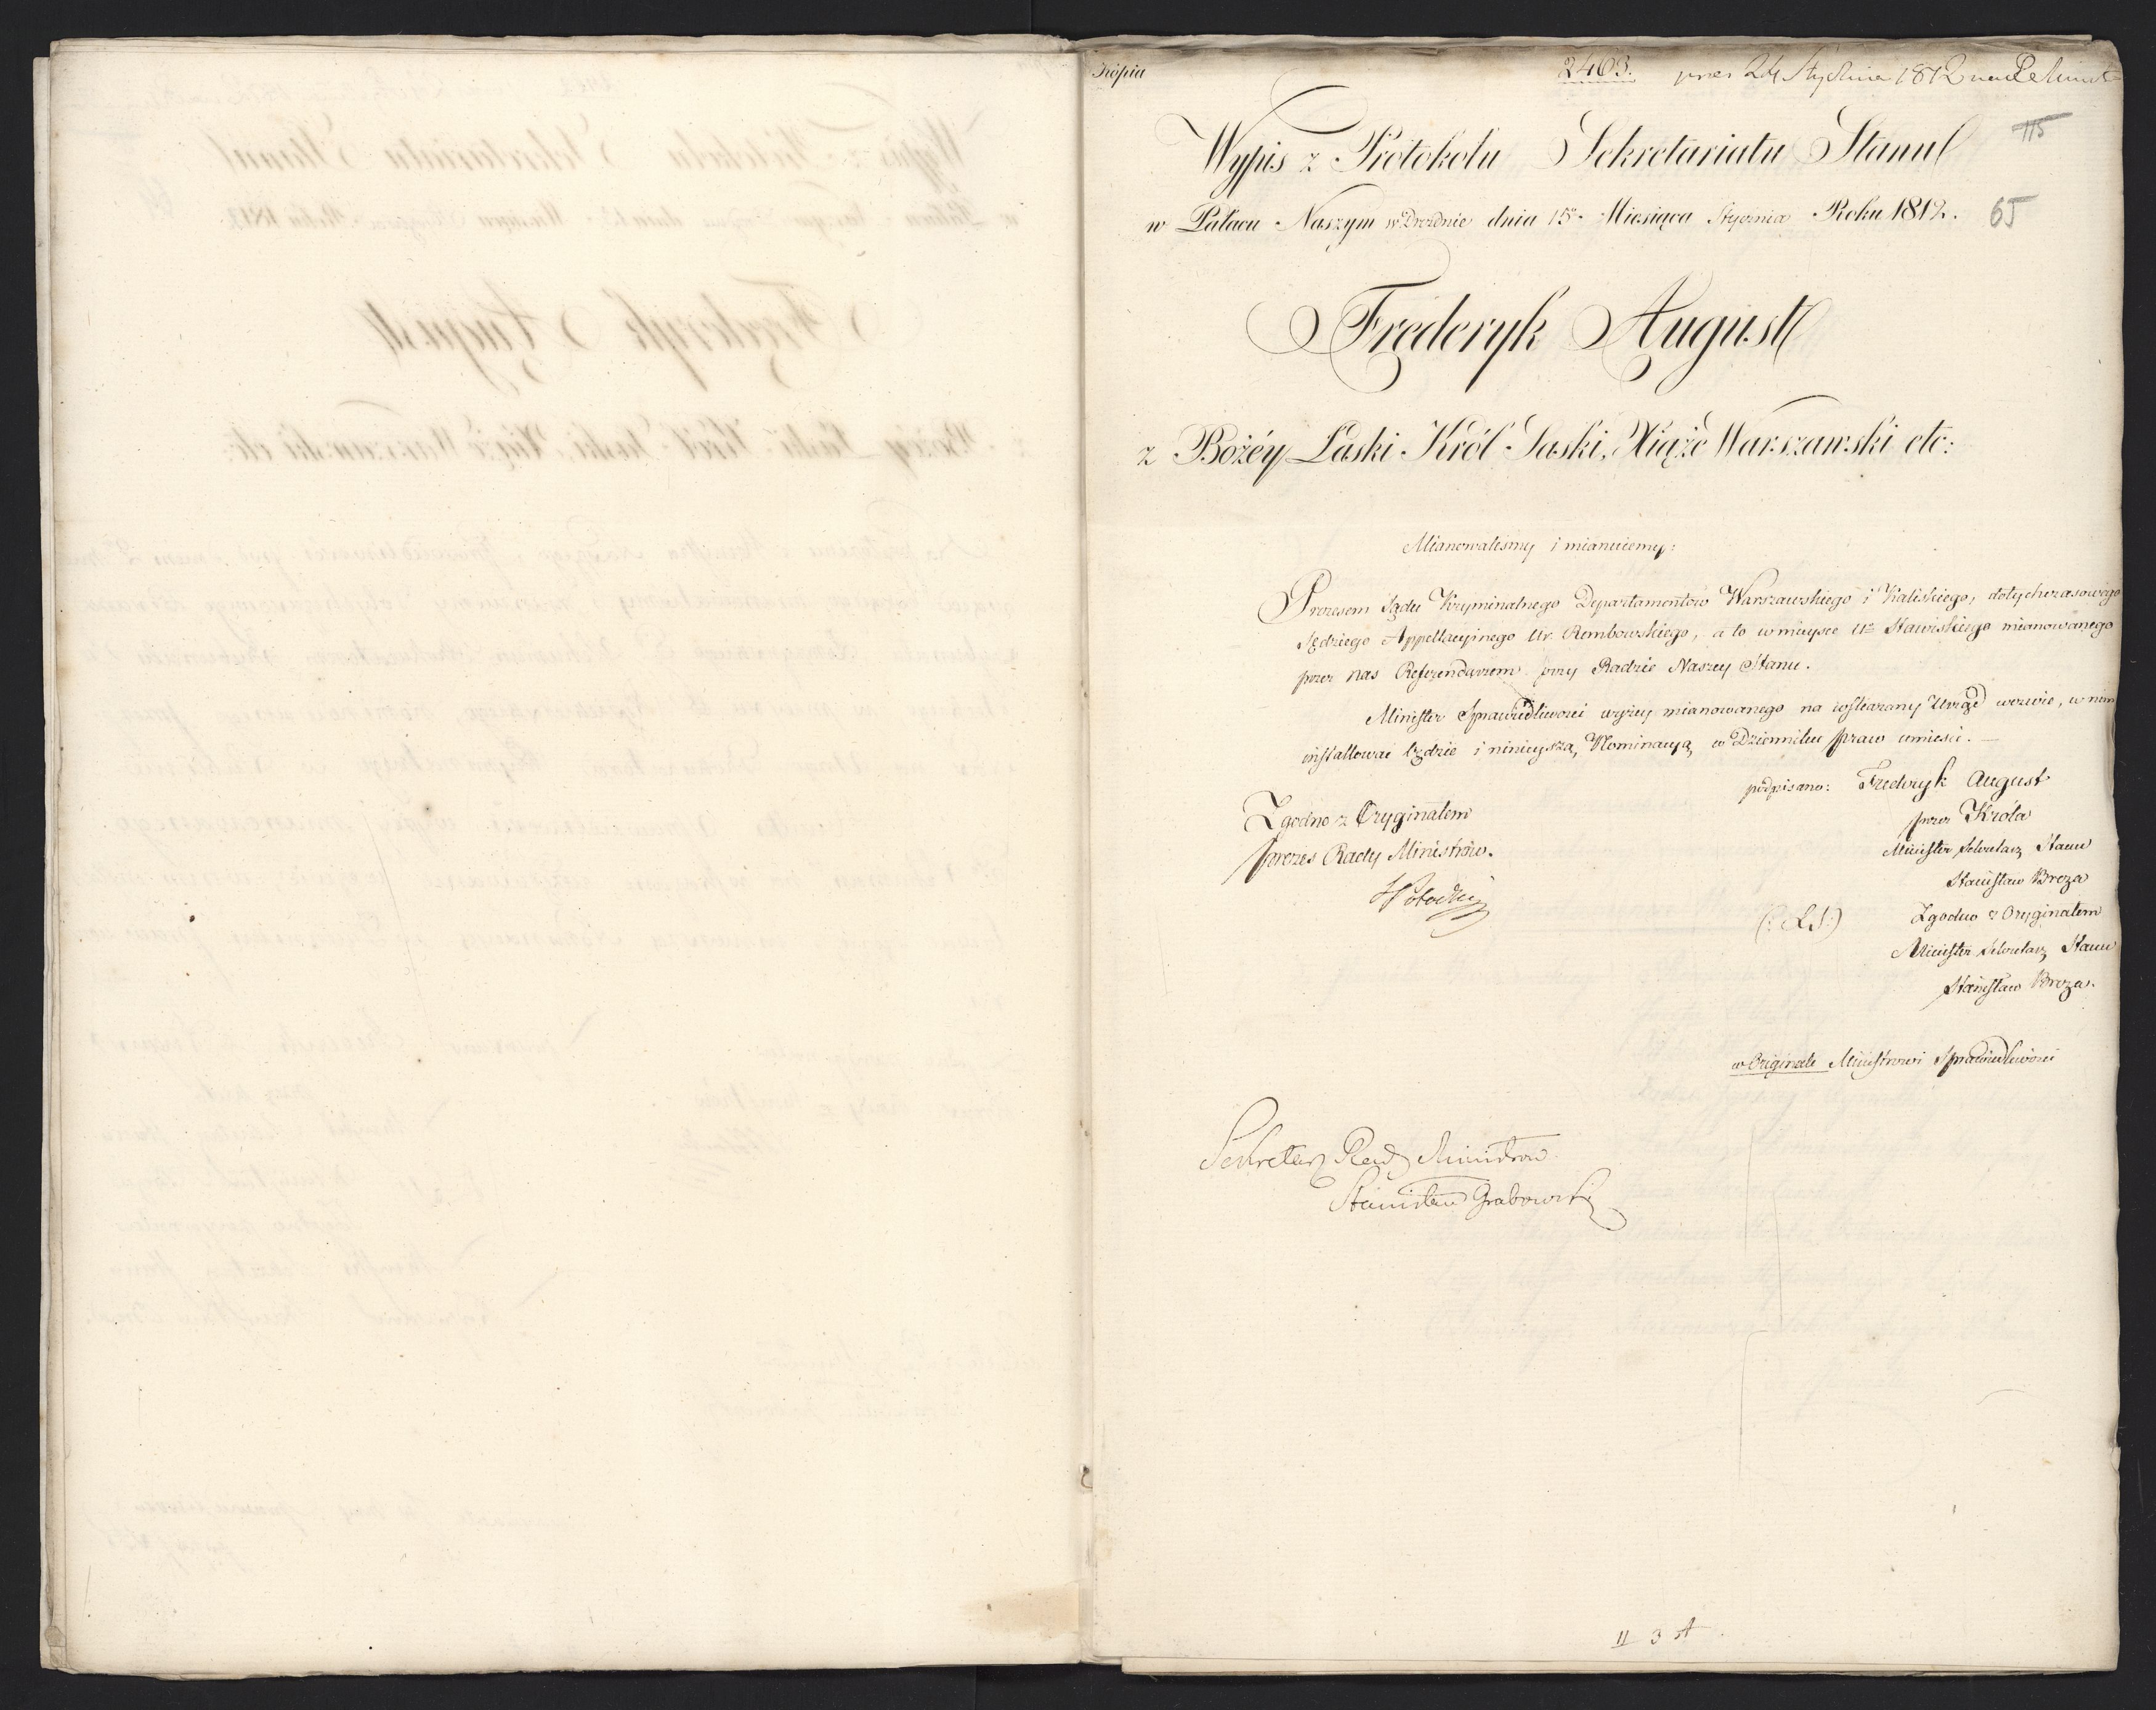 Kopia
2463. pnes 24 Stycznia 1812
115
Wypis z Protokołu Sekretariatu Stanu
w Pałacu Naszym w Dreznie dnia 15o Miesiąca Stycznia Roku 1812.
65
Frederyk August
z Bożéy Łaski Król Saski, Xiąże Warszawski etc:
Mianowaliśmy i mianuiemy:
Prezesem Sądu Kryminalnego Departamentów Warszawskiego i Kaliskiego, dotychczasowego
Sędziego Appellacyinego Ur. Rembowskiego, a to w mieysce Uo Stawiskiego mianowanego
przez nas Referendarzem przy Radzie Naszey Stanu.
Minister Sprawiedliwości wyżey mianowanego na wskazany Urząd wezwie, w nim
installować będzie i ninieyszą Nominacyą w Dzienniku praw umieści. —
podpisano: Frederyk August
przez Króla
Minister Sekretarz Stanu
Stanisław Breza
Zgodno z Oryginałem
prezes Rady Ministrów.
SPotocki
(: L.S:)
Zgodno z Oryginałem
Minister Sekretarz Stanu
Stanisław Breza.
w Originale Ministrowi Sprawiedliwości
Sekretarz Rady Ministrow
Stanisław Grabowski
II 3 st